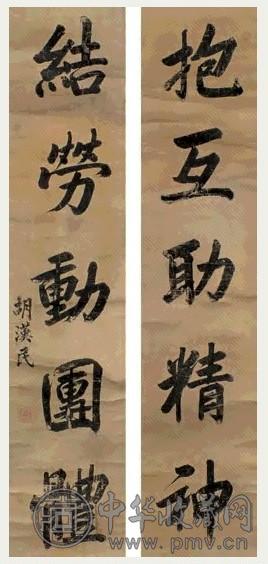 抱互助精神
結勞動團體
胡漢民
中华收藏网
www.pmv.cn